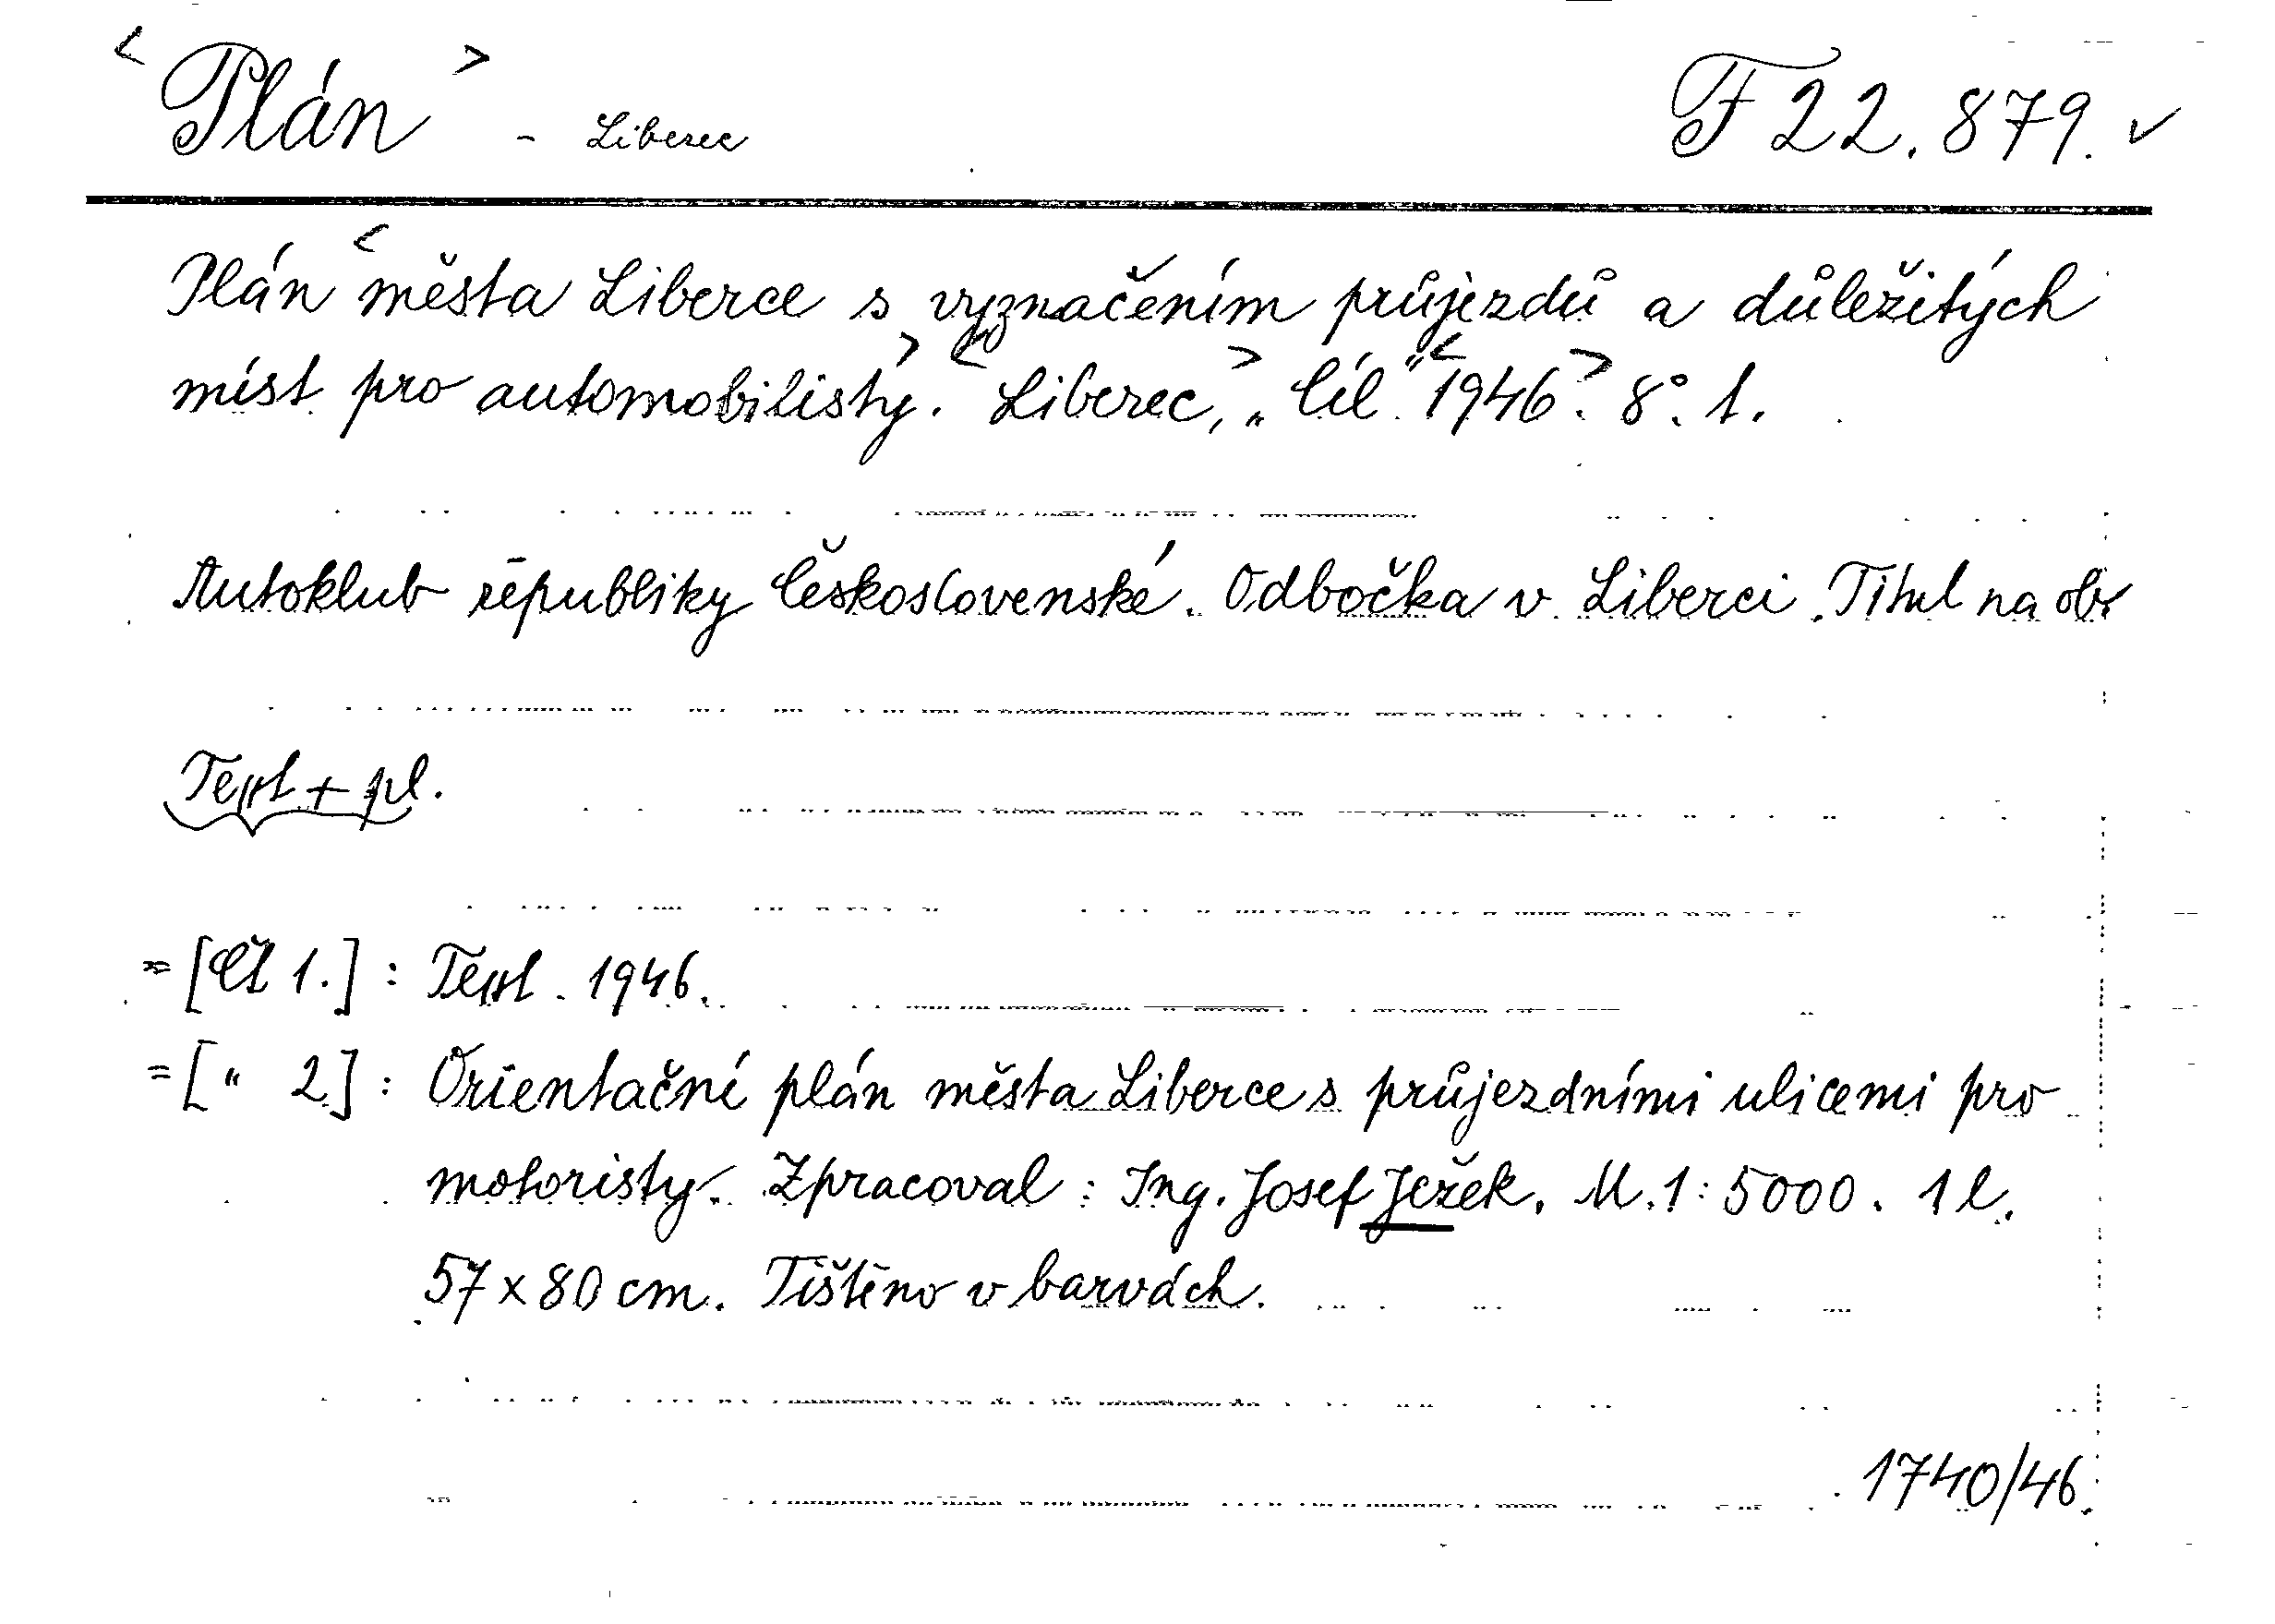 <Plán> - Liberec F 22.879. ✓
Plán <města Liberce s vyznačením průjezdů a důležitých
míst pro automobilisty>. <Liberec>, „Cíl" <1946>. 8°. 1.
Autoklub republiky Československé. Odbočka v Liberci. Titul na ob.
Text + pl.
= [Čl 1.] : Text. 1946.
= [" 2] : Orientační plán města Liberce s průjezdními ulicemi pro
motoristy. Zpracoval : Ing. Josef Ježek. M. 1 : 5000. 1 l.
57 x 80 cm. Tištěno v barvách.
1740/46.